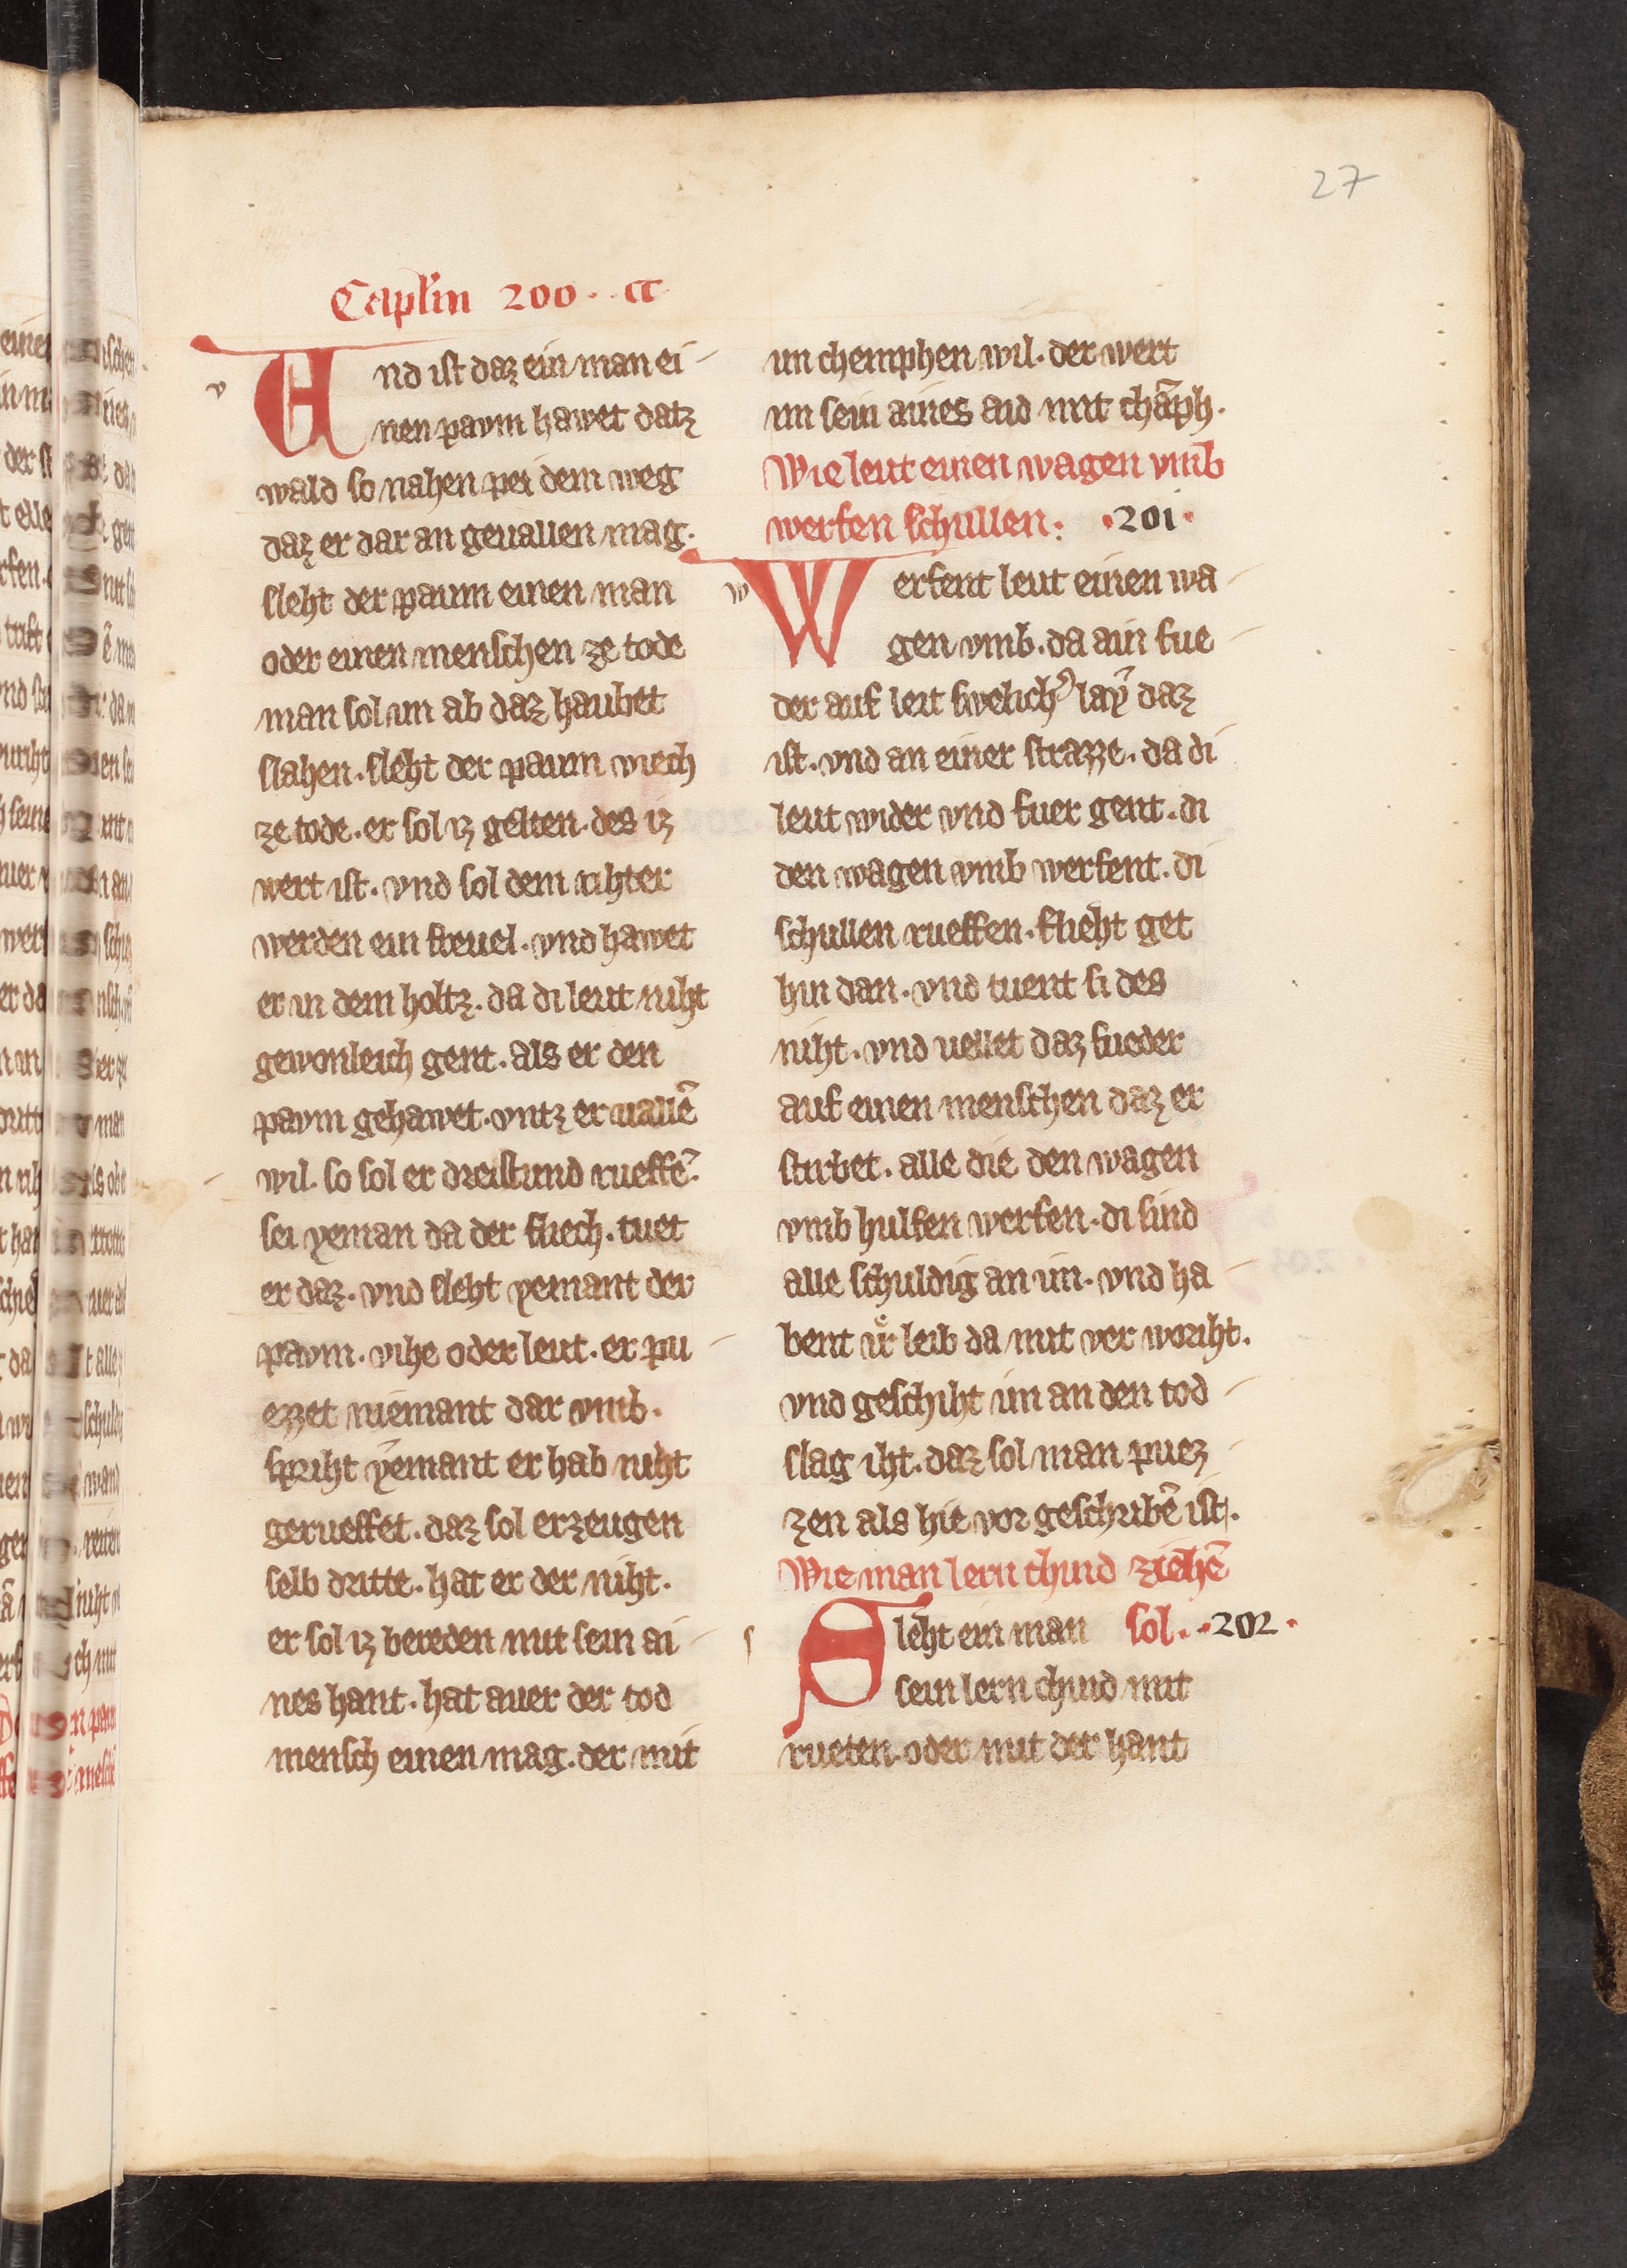 27
Caplm 200. a
Und ist daz ein man ei-
nen paum hawet datz
wald so nahen pei dem weg
daz er dar an geuallen mag.
sleht der paum einen man
oder einen menschen ze tode
man sol im ab daz haubet
slahen. sleht der paum viech
ze tode. er sol iz gelten. des iz
wert ist. vnd sol dem rihter
werden ein freuel. vnd hawet
er in dem holtz. da di leut niht
gewonleich gent. als er den
paym gehawet. vntz er uallē
wil. so sol er dreistund rueffē.
sei yeman da der fliech. tuet
er daz. vnd sleht yemant der
paym. vihe oder leut. er pu-
ezzet niemant dar vmb.
spriht yemant er hab niht
gerueffet. daz sol erzeugen
selb dritte. hat er der niht.
er sol iz bereden mit sein ai-
nes hant. hat auer der tod
mensch einen mag. der mit
im chemphen wil. der wert
im sein aines aid mit chāph.
Wie leut einen wagen vmb
werfen schullen. .201.
Werfent leut einen wa-
gen vmb. da ain fue-
der auf leit swelich' lay daz
ist. vnd an einer strazze. da di
leut wider vnd fuer gent. di
den wagen vmb werfent. di
schullen rueffen. flieht get
hin dan. vnd tuent si des
niht. vnd uellet daz fueder
auf einen menschen daz er
stirbet. alle die den wagen
vmb hulfen werfen. di sind
alle schuldig an im. vnd ha-
bent ir leib da mit ver woriht.
vnd geschiht im an den tod-
slag iht. daz sol man puez-
zen als hie vor geschribē ist.
Wie man lern chind ziehē
sol. .202.
Sleht ein man
sein lern chind mit
rueten. oder mit der hant